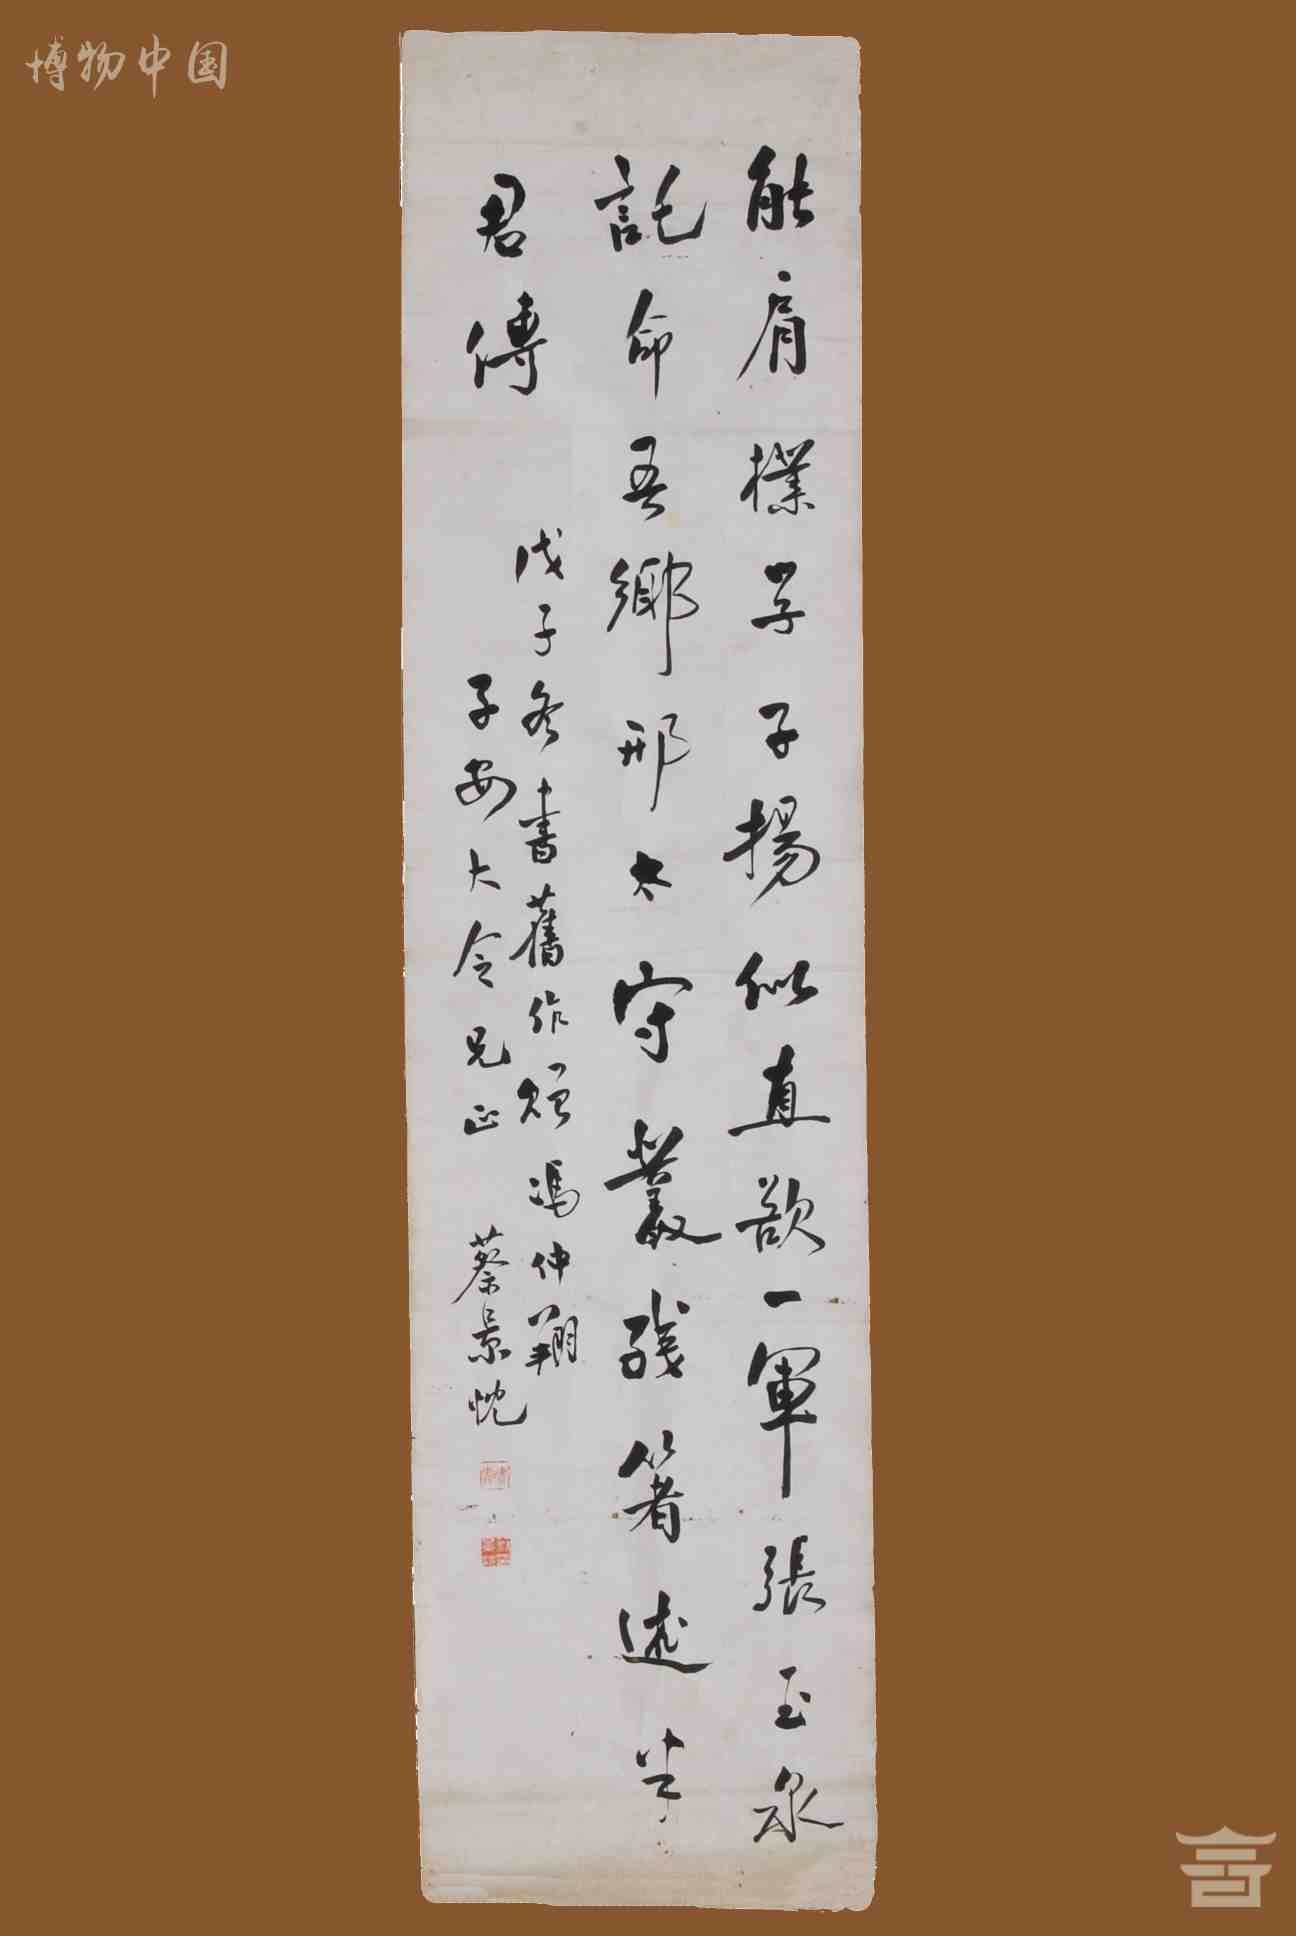 博物中国
能肩樸学子揚似直欲一軍張玉泉
託命吾鄉邢太守叢殘箸述半
君傳
戊子冬書舊作贈馮仲翔
子安大令兄正
蔡景忱